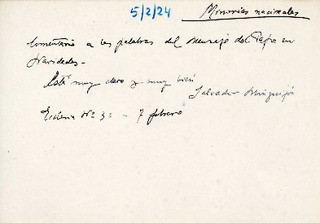 5/2/24
Minorías nacionales
Comentario a las palabras del Mensaje del Papa en
Navidades.-
Está muy claro y muy bien
Salvador Minguijón
Nº 33 - 7 febrero